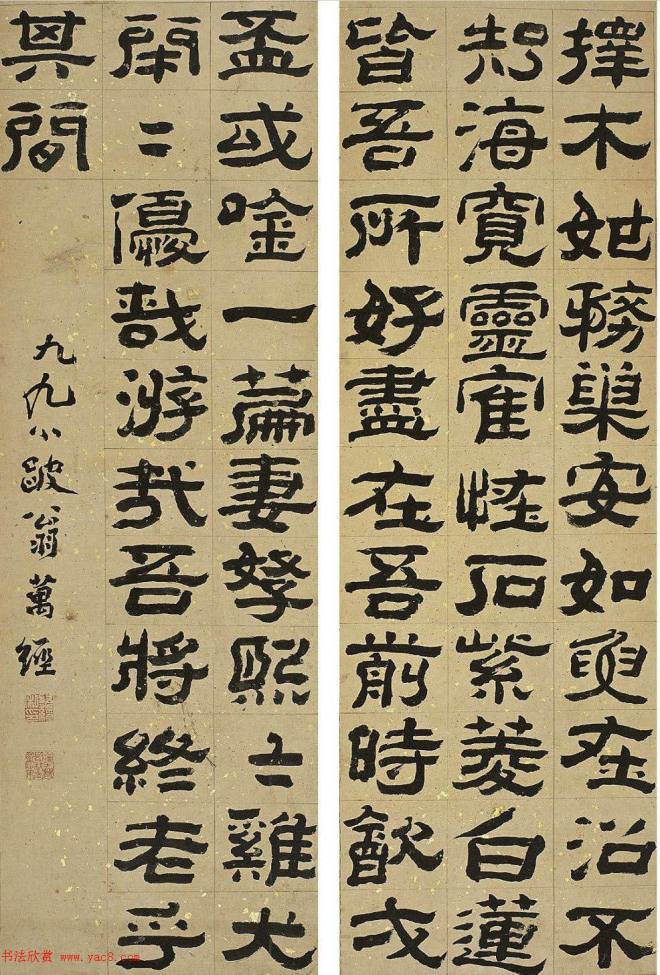 擇木姑務巢安如龜在沼不
知海寬靈隺怪石紫菱白蓮
皆吾所好盡在吾前時㱃弌
盃或唫一篇妻孥熙二雞犬
閑二優哉游哉吾將終老乎
其間
九九小跛翁萬經
书法欣赏 www.yac8.com